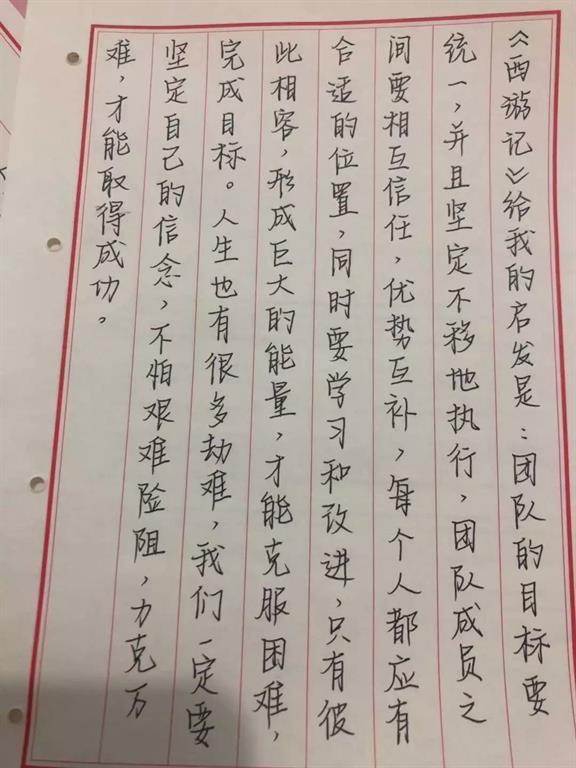 《西游记》给我的启发是：团队的目标要
统一，并且坚定不移地执行，团队成员之
间要相互信任，优势互补，每个人都应有
合适的位置，同时要学习和改进，只有彼
此相容，形成巨大的能量，才能克服困难，
完成目标。人生也有很多劫难，我们一定要
坚定自己的信念，不怕艰难险阻，力克万
难，才能取得成功。